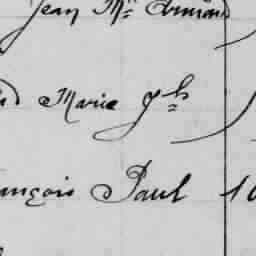 Jean M.ie Armand
d Marie J.h
ançois Paul 10